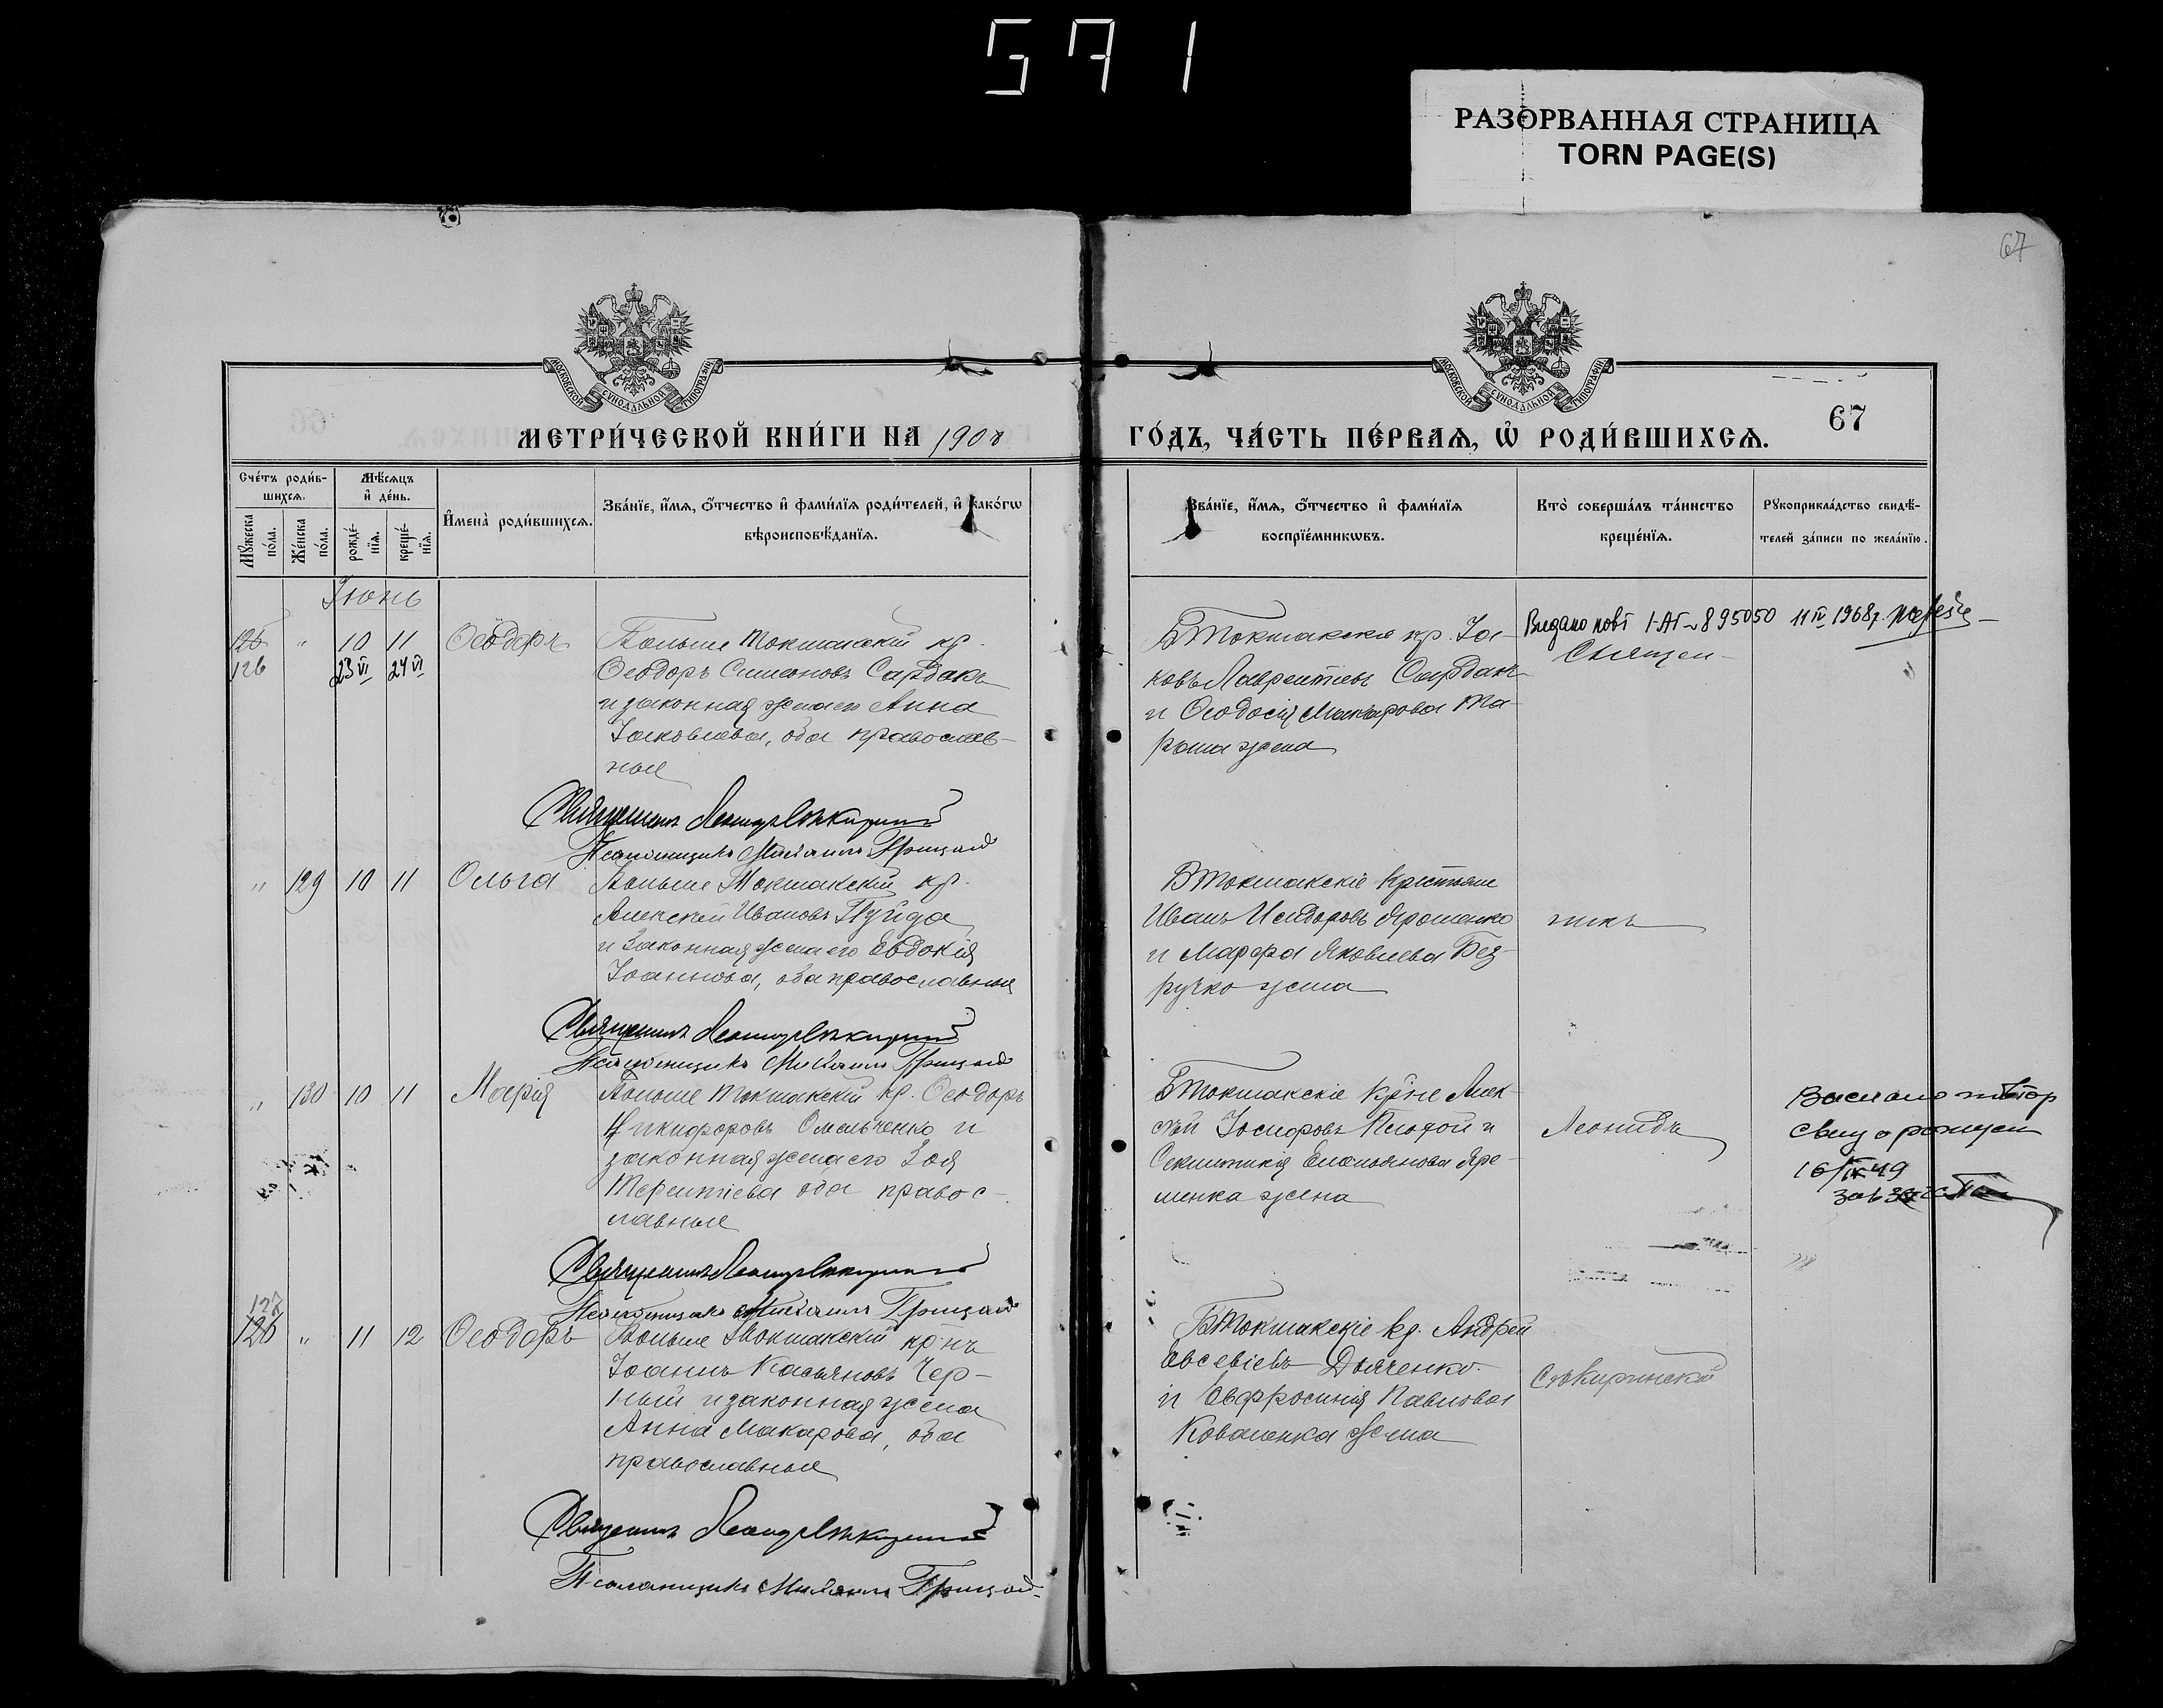 571
РАЗОРВАННАЯ СТРАНИЦА
TORN PAGE(S)
67
МОСКОВСКОЙ СѴНОДАЛЬНОЙ ТИПОГРАФІИ
МОСКОВСКОЙ СѴНОДАЛЬНОЙ ТИПОГРАФІИ
МЕТРИ́ЧЕСКОЙ КНИ́ГИ НА 1908
ГО́ДЪ, ЧА́СТЬ ПЕ́РВАѦ, Ѡ҆ РОДИ́ВШИХСѦ.
67
Сче́тъ роди́в-
шихсѧ.
Мѣ́сѧцъ
и҆ де́нь.
Мꙋ́жеска
по́ла.
Же́нска
по́ла.
рожде́-
нїѧ.
креще́-
нїѧ.
И҆мена̀ роди́вшихсѧ.
Зва́нїе, и҆́мѧ, ѻ҆́тчество и҆ фами́лїѧ роди́телей, и҆ како́гѡ
вѣроисповѣ́данїѧ.
Зва́нїе, и҆́мѧ, ѻ҆́тчество и҆ фами́лїѧ
воспрїе́мникѡвъ.
Кто̀ соверша́лъ та́инство
креще́нїѧ.
Рꙋкоприкла́дство свидѣ́-
телей за́писи по жела́нїю.
Іюнь
125 " 10 11 Ѳеодоръ
126 23 VI 24 VI
Больше Токмакскій кр.
Ѳеодоръ Симеоновъ Сардакъ
и законная жена его Анна
Іаковлева, оба православ-
ные
Б Токмакскіе кр. Іа-
ковъ Лаврентіевъ Сардакъ
и Ѳеодосія Макарова
жена
Видано повт I-АП № 895050 11 IV 1968 р.
Священ-
Священникъ Леонидъ Сѣкиринскій
Псаломщикъ Михаилъ Грицай
" 129 10 11 Ольга
Больше Токмакскій кр.
Алексѣй Ивановъ
и законная жена его Евдокія
Іоаннова, оба православные
Б Токмакскіе крестьяне
Иванъ Исидоровъ Ярошенко
и Марфа Яковлева Без-
ручко жена
никъ
Священникъ Леонидъ Сѣкиринскій
Псаломщикъ Михаилъ Грицай
" 130 10 11 Марія
Больше Токмакскій кр. Ѳеодоръ
Никифоровъ Омельченко и
законная жена его Зоя
Терентіева оба правос-
лавные
Б Токмакскіе кр-не Алек-
сѣй Іосифовъ и
Емельянова Яре-
менка жена
Леонидъ
повтор
свид о рожден
16/IX 49
Священникъ Леонидъ Сѣкиринскій
Псаломщикъ Михаилъ Грицай
127
126 " 11 12 Ѳеодоръ
Больше Токмакскій кр-нъ
Іоаннъ Касьяновъ Чер-
ный и законная жена
Анна Макарова, оба
православные
Б Токмакскіе кр. Андрей
Евсевіевъ Дьяченко
и Евфросинія Павлова
Коваленка жена
Сѣкиринскій
Священникъ Леонидъ Сѣкиринскій
Псаломщикъ Михаилъ Грицай